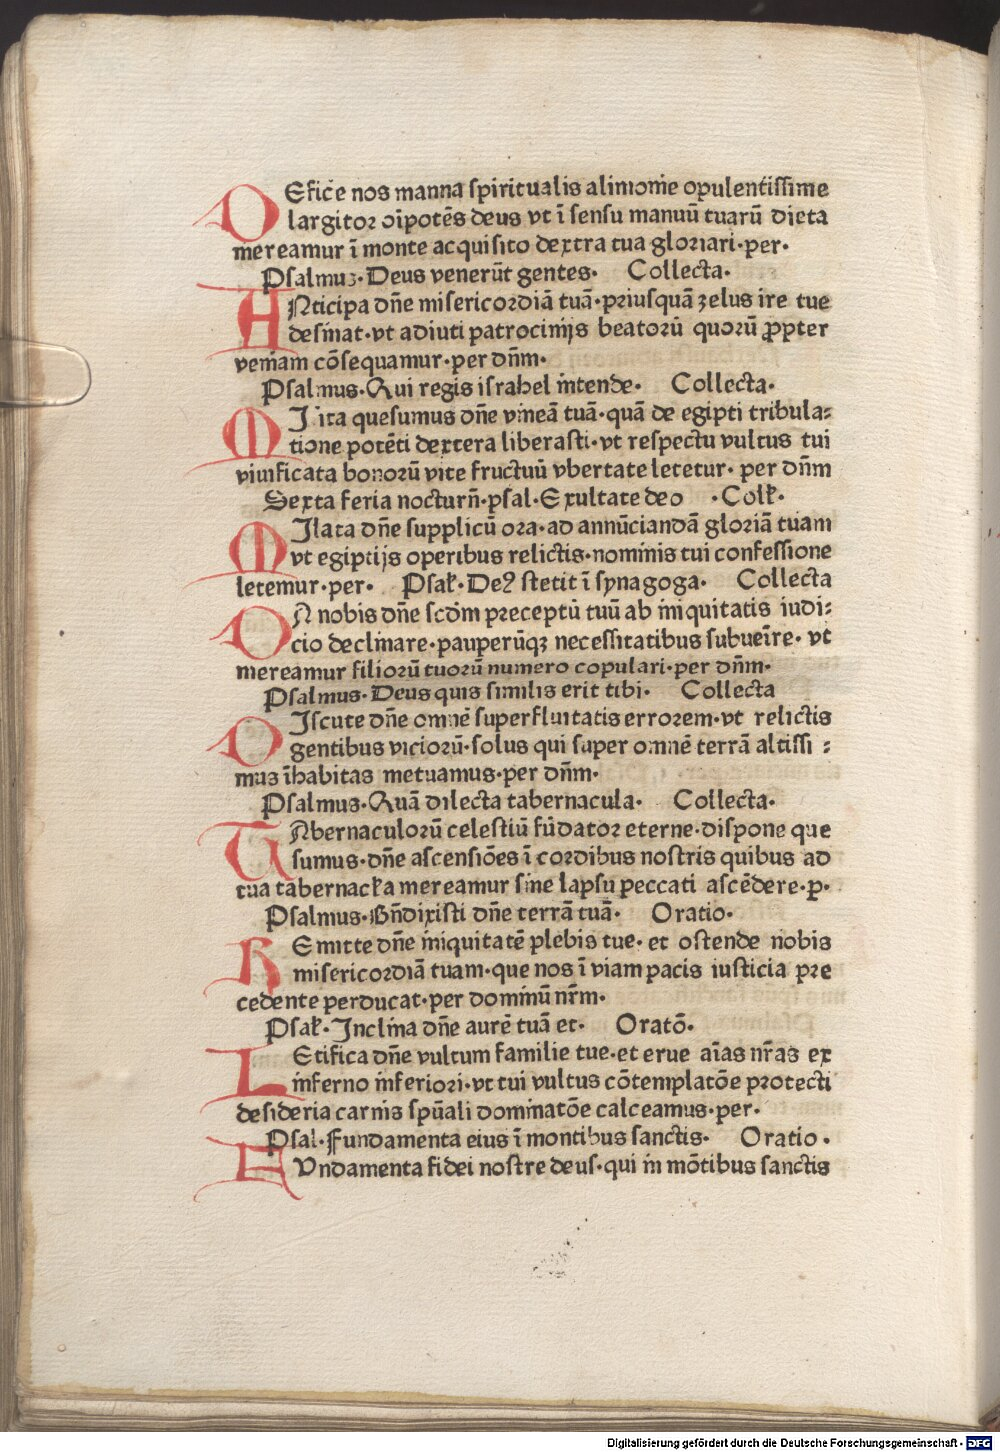 DEfic̄e nos manna spiritualis alimonie opulentissime
largitor oīpotēs deus vt ī sensu manuū tuarū dieta
mereamur ī monte acquisito dextra tua gloriari·per·
Psalmuʒ·Deus venerūt gentes· Collecta·
ANticipa dn̄e misericordiā tuā·priusquā zelus ire tue
desinat·vt adiuti patrocinijs beatorū quorū ꝓpter
veniam cōsequamur·per dn̄m·
Psalmus·Qui regis israhel intende· Collecta·
ita quesumus dn̄e vineā tuā·quā de egipti tribula⸗
tione potēti dextera liberasti·vt respectu vultus tui
viuificata bonorū vite fructuū vbertate letetur· per dn̄m
Sexta feria nocturn̄·psal·Exultate deo ·Colꝉ·
MIlata dn̄e supplicū ora·ad annūciandā gloriā tuam
vt egiptijs operibus relictis·nominis tui confessione
letemur·per· Psaꝉ·Deꝰ stetit ī synagoga· Collecta
DN nobis dn̄e scdm̄ preceptū tuū ab iniquitatis iudi⸗
cio declinare·pauperūqꝫ necessitatibus subueīre· vt
mereamur filiorū tuorū numero copulari·per dn̄m·
Psalmus·Deus quis similis erit tibi· Collecta
DIscute dn̄e omnē superfluitatis errorem·vt relictis
gentibus viciorū·solus qui super omnē terrā altissi⸗
mus īhabitas metuamus·per dn̄m·
Psalmus·Quā dilecta tabernacula· Collecta·
TAbernaculorū celestiū fūdator eterne·dispone que
sumus·dn̄e ascensiōes ī cordibus nostris quibus ad
tua tabernacꝉa mereamur sine lapsu peccati ascēdere·p·
Psalmus·Bn̄dixisti dn̄e terrā tuā· Oratio·
REmitte dn̄e iniquitatē plebis tue· et ostende nobis
misericordiā tuam·que nos ī viam pacis iusticia pre
cedente perducat·per dominū nr̄m·
Psaꝉ·Inclina dn̄e aurē tuā et· Oratō·
LEtifica dn̄e vultum familie tue·et erue aīas nr̄as ex
inferno inferiori·vt tui vultus cōtemplatōe protecti
desideria carnis spūali dominatōe calceamus·per·
Psal·Fundamenta eius ī montibus sanctis· Oratio·
FUndamenta fidei nostre deus·qui in mōtibus sanctis
Digitalisierung gefördert durch die Deutsche Forschungsgemeinschaft - DFG